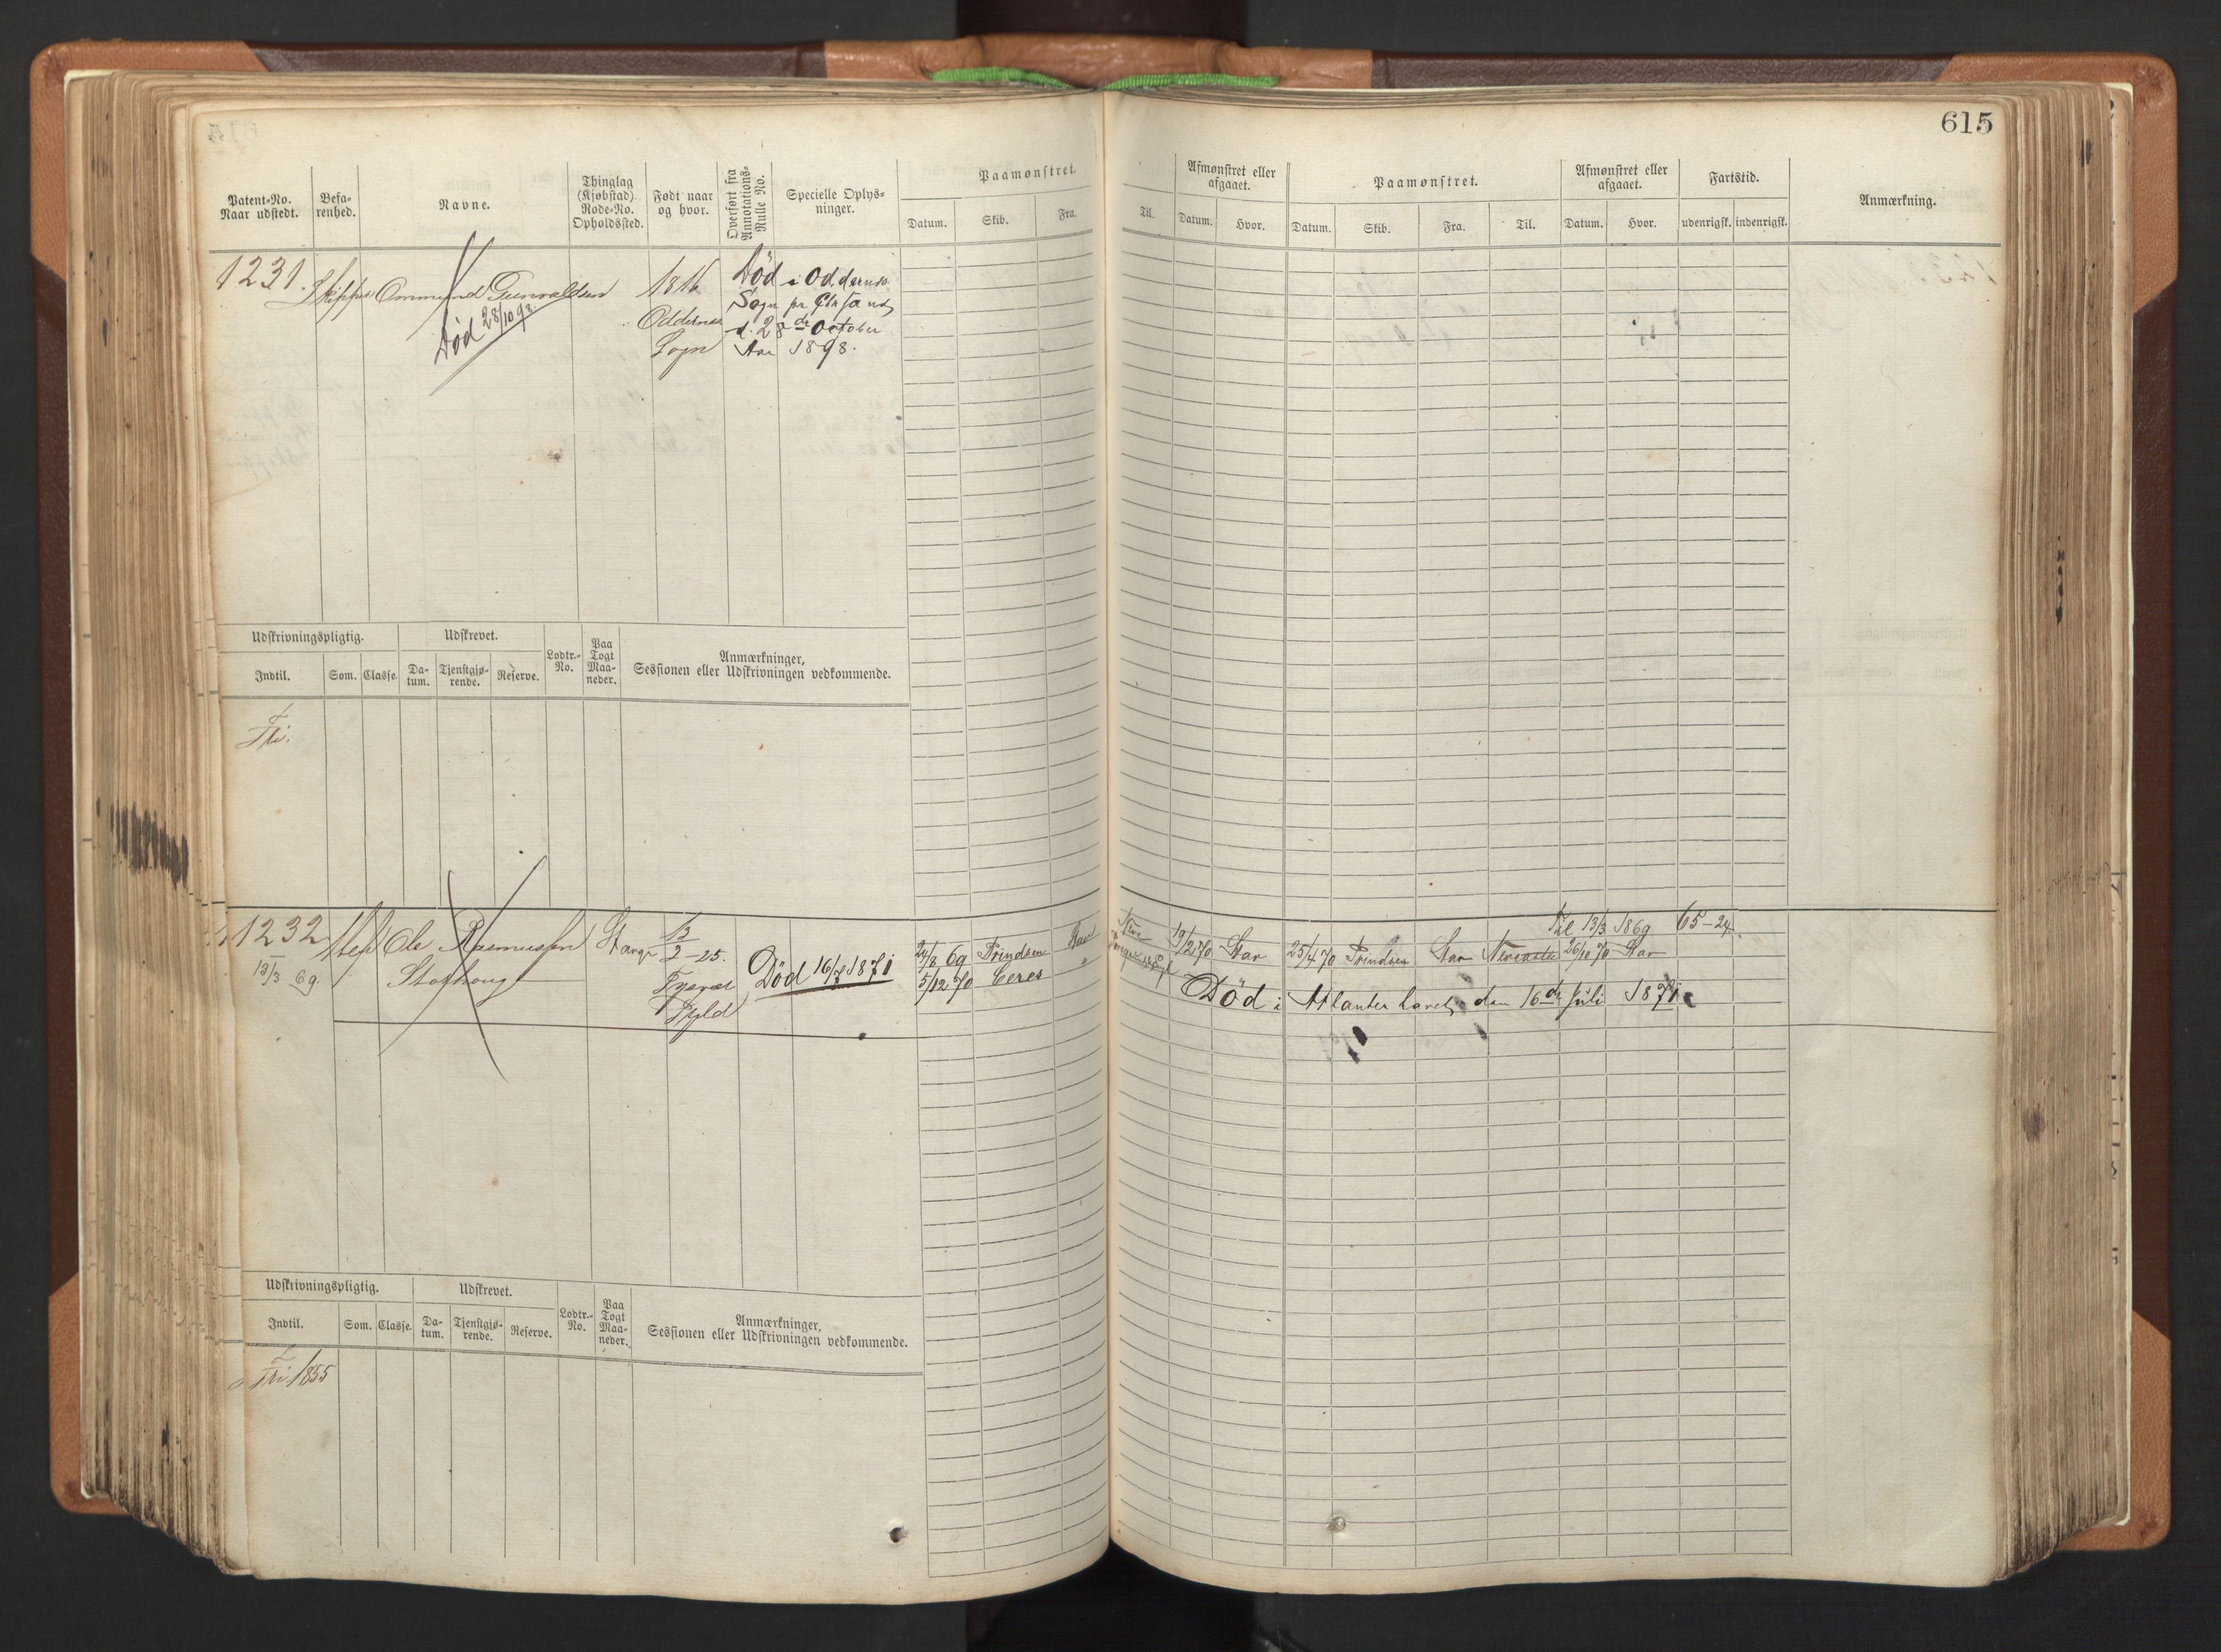 615
Patent-No. Naar udstedt.
Befa-renhed.
Navne.
Thinglag (Kjøbstad) Rode-No. Opholdssted.
Født naar og hvor.
Overført fra Annotations-Rulle No.
Specielle Oplys-ninger.
Paamønstret.
Datum. Skib. Fra. Til.
Afmønstret eller afgaaet.
Datum. Hvor.
Paamønstret.
Datum. Skib. Fra. Til.
Afmønstret eller afgaaet.
Datum. Hvor.
Fartstid.
udenrigsk. indenrigsk.
Anmærkning.
1231. Skipper Ommund Gunvaldsen 1816
Død 28/10 98.
Oddernes
Sogn
Død i Oddernes
Sogn pr Chrsand
d. 28de October
Aar 1898.
Udskrivningspligtig.
Udskrevet.
Lodtr.-No.
Paa Togt Maa-neder.
Anmærkninger,
Sessionen eller Udskrivningen vedkommende.
Indtil. Som. Classe. Da-tum. Tjenstgjø-rende. Reserve.
Fri.
1232 Ole Rasmussen Stavgr 13/2-25.
13/3 69.
Tysvær
Død 16/7 1871
24/8 69 Prindsen Stav
5/12 70 Ceres
19/2 70 Stav 25/4 70 Prindsen Stav Newcastle 26/10 70 Stav
Til 13/3 1869 65-24
Død i Atlanterhavet den 16de Juli 1871
Udskrivningspligtig.
Udskrevet.
Lodtr.-No.
Paa Togt Maa-neder.
Anmærkninger,
Sessionen eller Udskrivningen vedkommende.
Indtil. Som. Classe. Da-tum. Tjenstgjø-rende. Reserve.
Fri 1855